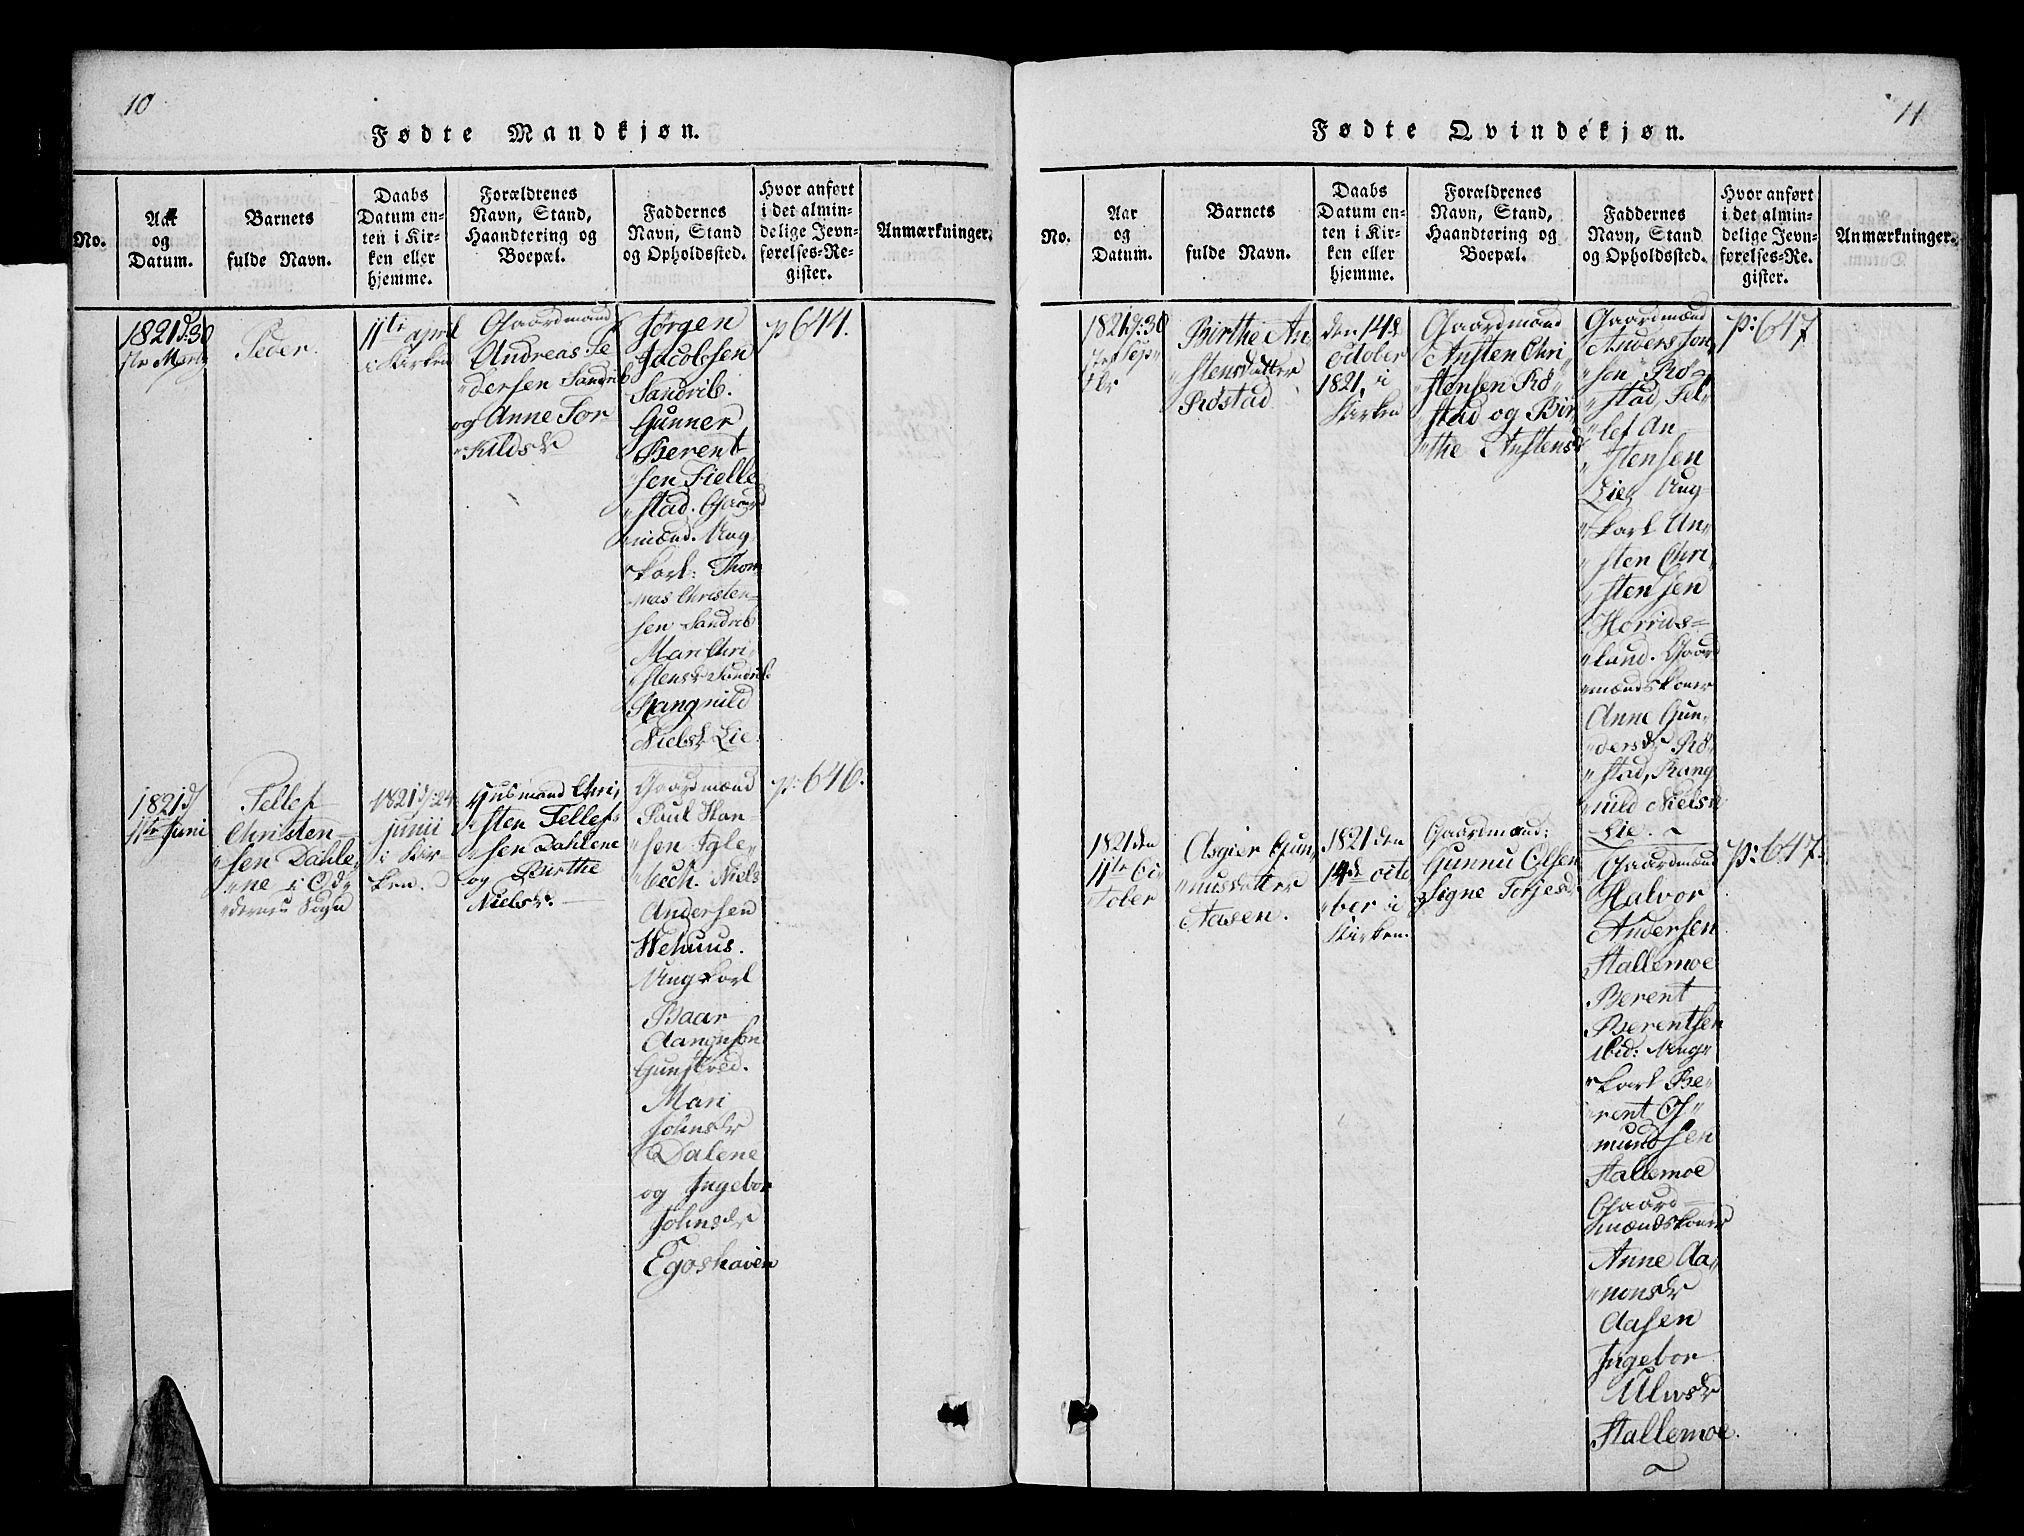 10
Fødte Mandkjøn.
No.
Aar
og
Datum.
Barnets
fulde Navn.
Daabs
Datum en-
ten i Kir-
ken eller
hjemme.
Forældrenes
Navn, Stand,
Haandtering og
Boepæl.
Faddernes
Navn, Stand
og Opholdssted.
Hvor anført
i det almin-
delige Jevn-
førelses-Re-
gister.
Anmærkninger.
1821 d: 30
Peder.
11te april
i Kirken
Gaardmand
Andreas Pe
"dersen Sandrib
og Anne Tor
"kildsdr
Jørgen
Jacobssen
Sandrib.
Gunner
Berent
sen Fielle
"stad. Gaard
"mænd. Ung
karl: Thom
mas Christen-
sen Sandrib
Mari Chri
"stensdr Sandrib
Rangnild
Nielsdr Lie
p 644.
1821 d/
11te Juni
Tellef
Christen-
"sen Dahle
"ne i Od
"dernes Sogn
1821 d: 24
junii
i Kir-
ken.
Husmand Chri
"sten Tellefs
"sen Dahlene
og Birthe
Nielsdr.
Gaardmænd
Paul Han
"sen Igle
"beck. Niels
Andersen
Wehuus.
Ungkarl
Baar
Aanensen
Gunstved.
Mari
Johnsdr
Dalene
og Ingebor
Johnsdr
Egoshaven
p: 646.
11
Fødte Qvindekjøn.
No.
Aar
og
Datum.
Barnets
fulde Navn.
Daabs
Datum en-
ten i Kir-
ken eller
hjemme.
Forældrenes
Navn, Stand,
Haandtering og
Boepæl.
Faddernes
Navn, Stand
og Opholdssted.
Hvor anført
i det almin-
delige Jevn-
førelses-Re-
gister.
Anmærkninger.
1821 d: 30
Birthe An
"stensdatter
Røstad
den 14d
october
1821, i
Kirken
Gaardmand
Ansten Chri
"stensen Rø
"stad og Bir
"the Anstensdr
Gaardmænd
Anders Jon
"sen Rø-
"stad, Tel
"lef An
"stensen
Lie, Ung
"karl An
"sten Chri
"stensen
Horrids-
"lund. Gaard
"mændskoner
Anne Gun
"dersdr Rø
"stad, Rang
"nild Nielsdr
Lie.
p: 647
1821 den
11te Oc
tober
Asgier Gun
"nusdatter
Aasen.
1821 den
14d octo
"ber i
Kirken.
Gaardmand:
Gunnu Olsen
Signe Torjesdr
Gaardmand
Halvor
Andersen
Stallemoe
Berent
Berentsen
ibid: Ung
"karl Be
"rent Os
mundsen
Stallemoe
Gaard
mændskoner
Anne Aa
"nonsdr
Aasen
Ingebor
Ulvsdr
Stallemoe.
p: 647.